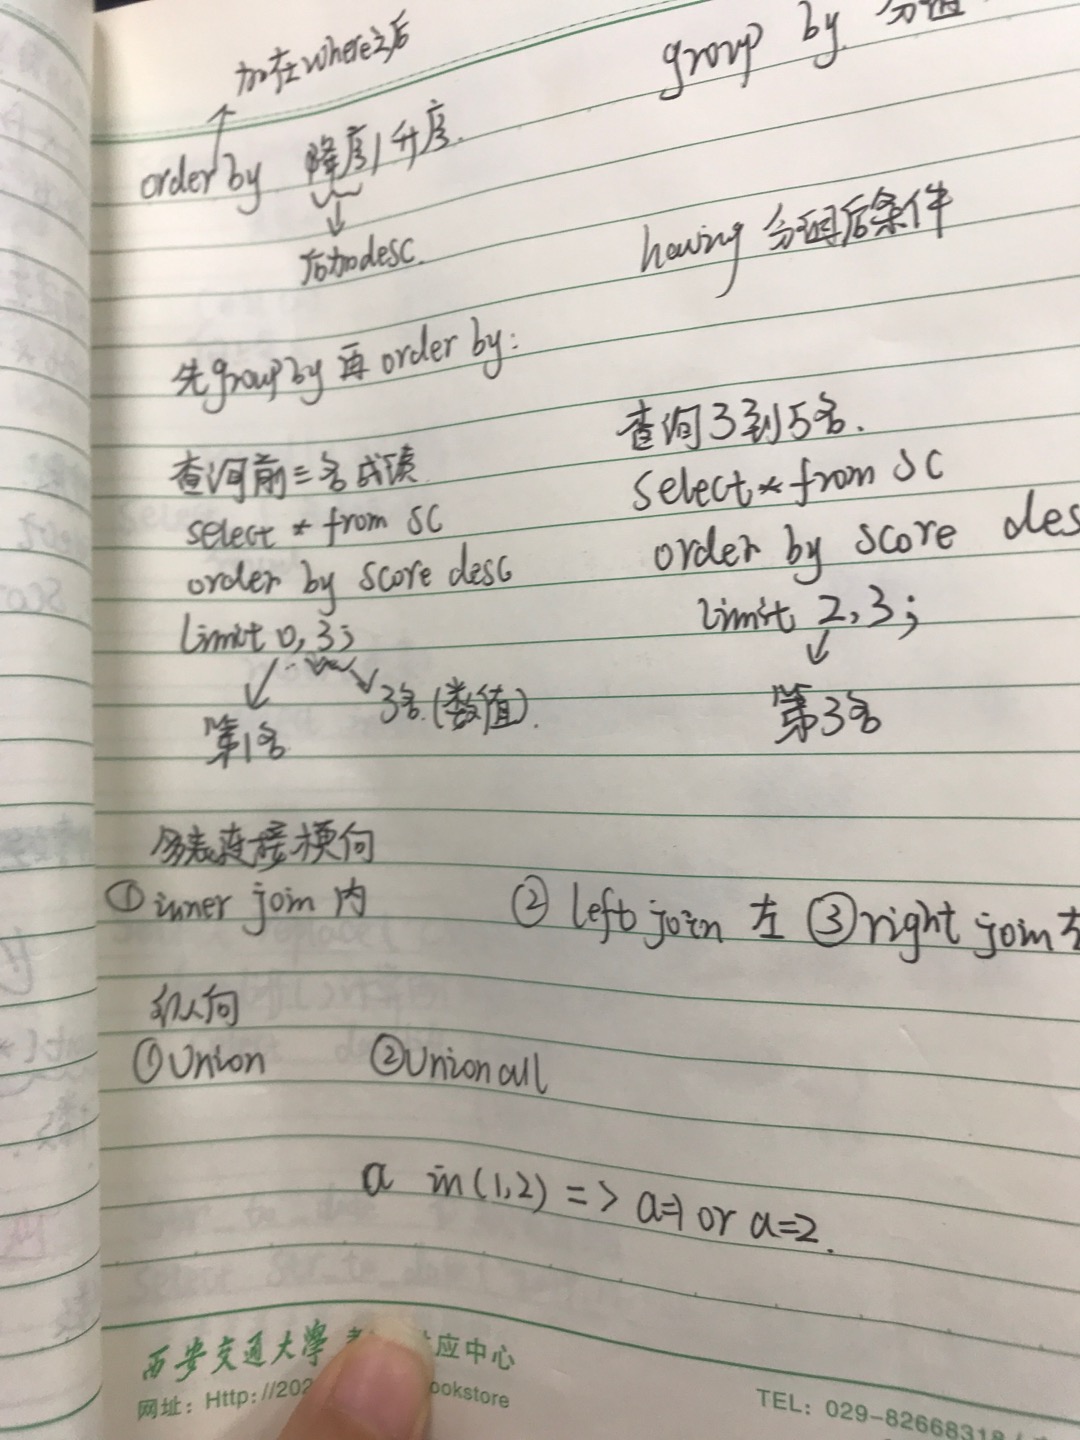 加在where之后
group by 分组
order by 降序/升序.
后加desc.
having 分组后条件
先group by 再 order by:
查询前三名成绩
select * from SC
order by score desc
limit 0, 3;
第1名
3名.(数值).
查询3到5名.
select * from SC
order by score des
limit 2, 3;
第3名
多表连接横向
① inner join 内
② left join 左 ③ right join
纵向
① Union
② Union all
a in (1,2) => a=1 or a=2.
西安交通大学 应中心
网址: Http://202 ookstore
TEL: 029-82668318